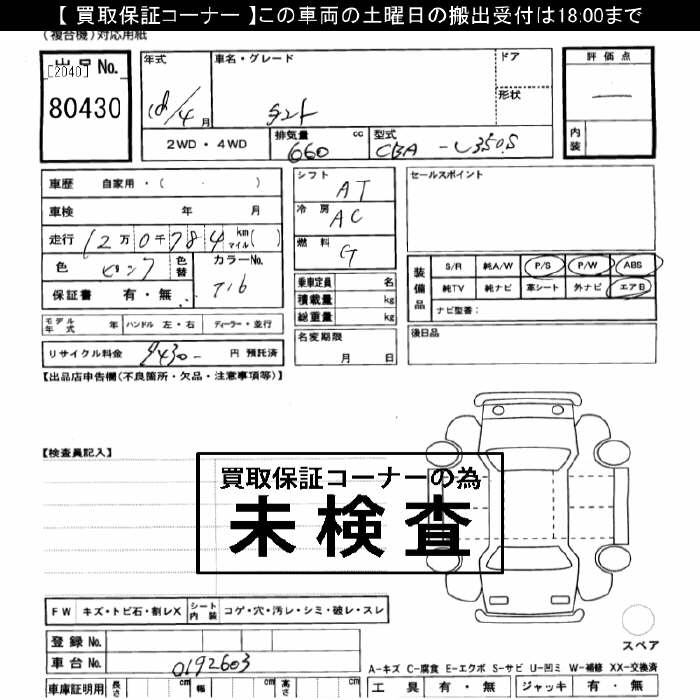 【 買取保証コーナー 】この車両の土曜日の搬出受付は18:00まで
(複合機)対応用紙
出品No.
[2040]
80430
年式
18/4月
車名・グレード
タント
ドア
形状
評価点
—
内装
2WD・4WD
排気量 cc
660
型式
CBA - L350S
車歴 自家用・( ・ )
車検 年 月
走行 12万0千784 km マイル( )
色 ピンク 色替
カラーNo.
T16
保証書 有・無
モデル年式 年 ハンドル 左・右 ディーラー・並行
リサイクル料金 9430- 円 預託済
シフト
AT
冷房
AC
燃料
G
乗車定員 名
積載量 kg
総重量 kg
名変期限
月 日
セールスポイント
装備品
S/R 純A/W P/S P/W ABS
純TV 純ナビ 革シート 外ナビ エアB
ナビ型番:
後日品
【出品店申告欄(不良箇所・欠品・注意事項等)】
【検査員記入】
買取保証コーナーの為
未検査
FW キズ・トビ石・割レX シート内装 コゲ・穴・汚レ・シミ・破レ・スレ
登録No.
車台No.
0192603
車庫証明用 長さ cm 幅 cm 高さ cm
スペア
A-キズ C-腐食 E-エクボ S-サビ U-凹ミ W-補修 XX-交換済
工具 有・無 ジャッキ 有・無